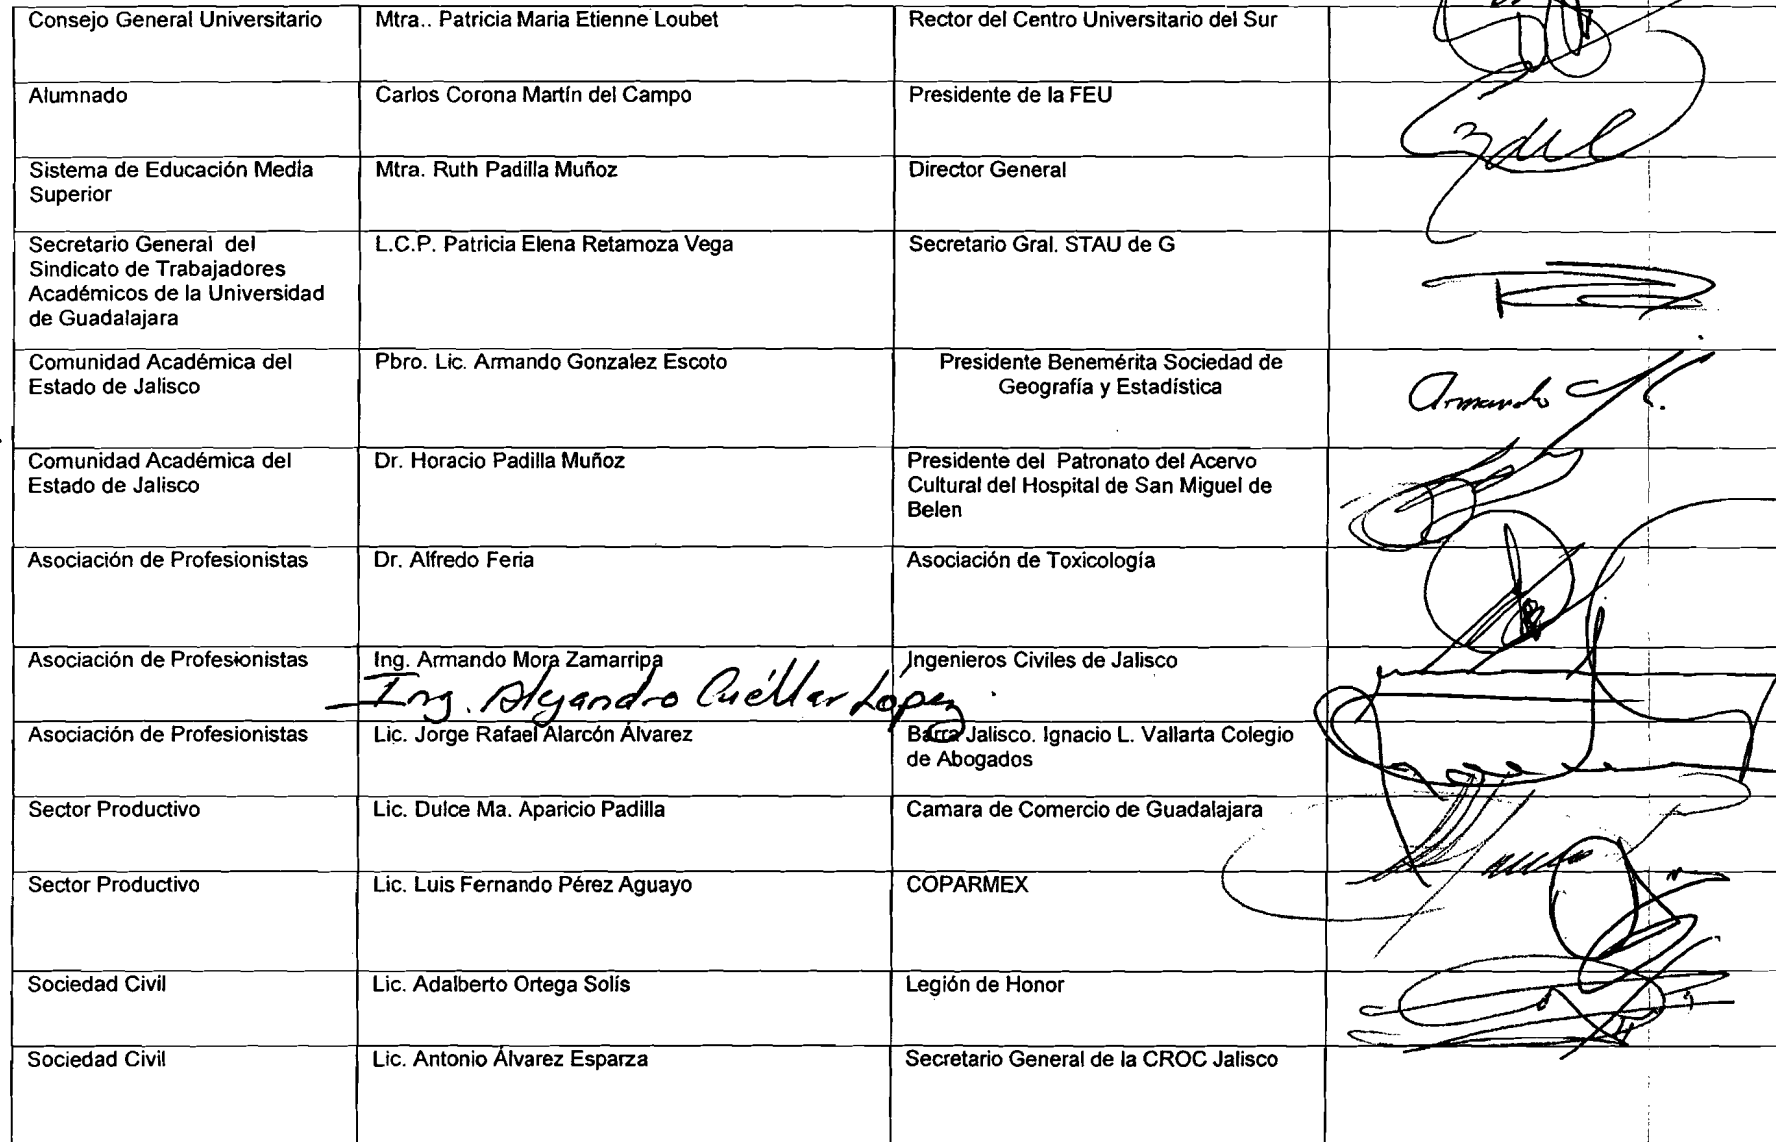 Consejo General Universitario
Mtra.. Patricia Maria Etienne Loubet
Rector del Centro Universitario del Sur
Alumnado
Carlos Corona Martín del Campo
Presidente de la FEU
Sistema de Educación Media
Superior
Mtra. Ruth Padilla Muñoz
Director General
Secretario General del
Sindicato de Trabajadores
Académicos de la Universidad
de Guadalajara
L.C.P. Patricia Elena Retamoza Vega
Secretario Gral. STAU de G
Comunidad Académica del
Estado de Jalisco
Pbro. Lic. Armando Gonzalez Escoto
Presidente Benemérita Sociedad de
Geografía y Estadística
Armando
Comunidad Académica del
Estado de Jalisco
Dr. Horacio Padilla Muñoz
Presidente del Patronato del Acervo
Cultural del Hospital de San Miguel de
Belen
Asociación de Profesionistas
Dr. Alfredo Feria
Asociación de Toxicología
Asociación de Profesionistas
Ing. Armando Mora Zamarripa
Ing. Alejandro Cuéllar López
Ingenieros Civiles de Jalisco
Asociación de Profesionistas
Lic. Jorge Rafael Alarcón Álvarez
Barra Jalisco. Ignacio L. Vallarta Colegio
de Abogados
Sector Productivo
Lic. Dulce Ma. Aparicio Padilla
Camara de Comercio de Guadalajara
Sector Productivo
Lic. Luis Fernando Pérez Aguayo
COPARMEX
Sociedad Civil
Lic. Adalberto Ortega Solís
Legión de Honor
Sociedad Civil
Lic. Antonio Álvarez Esparza
Secretario General de la CROC Jalisco